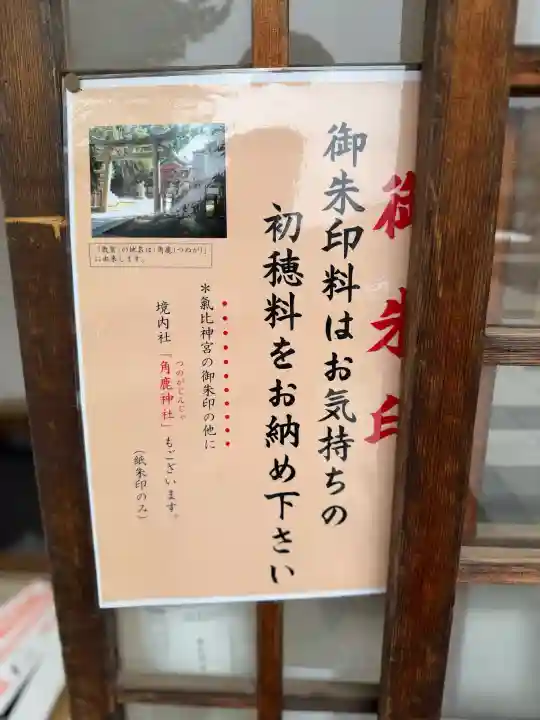 御朱印
御朱印料はお気持ちの
初穂料をお納め下さい
＊氣比神宮の御朱印の他に
境内社「角鹿神社」もございます。
つのがじんじゃ
（紙朱印のみ）
「敦賀」の地名は「角鹿（つぬが）」
に由来します。